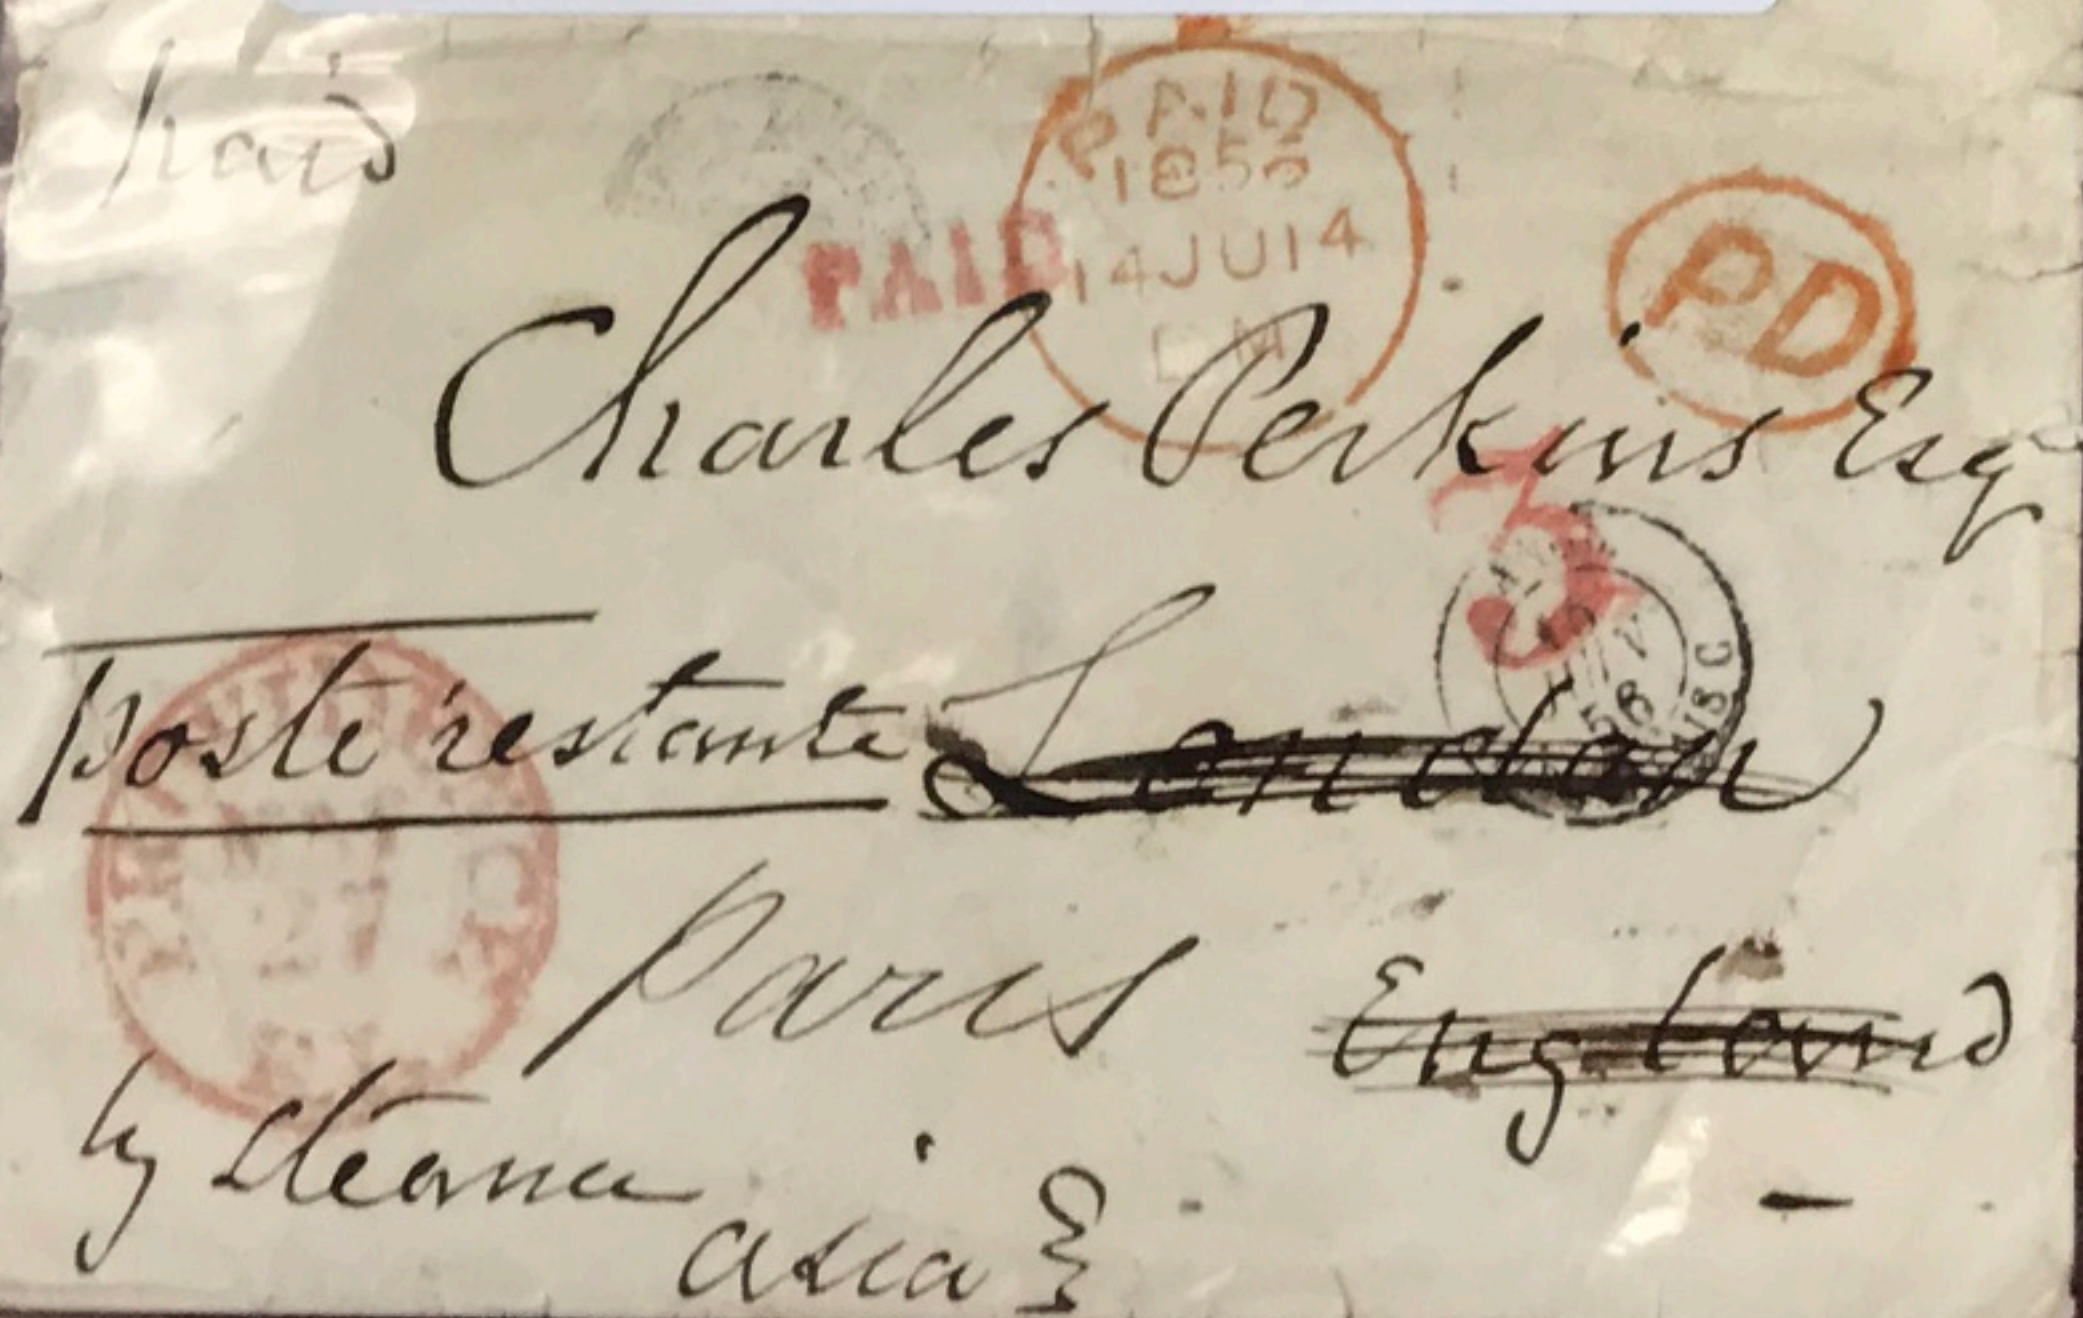 paid
PAID
1856
14JU14
PAID
PD
Charles Perkins Esq
3
poste restante London
56
Paris
England
by steamer
asia